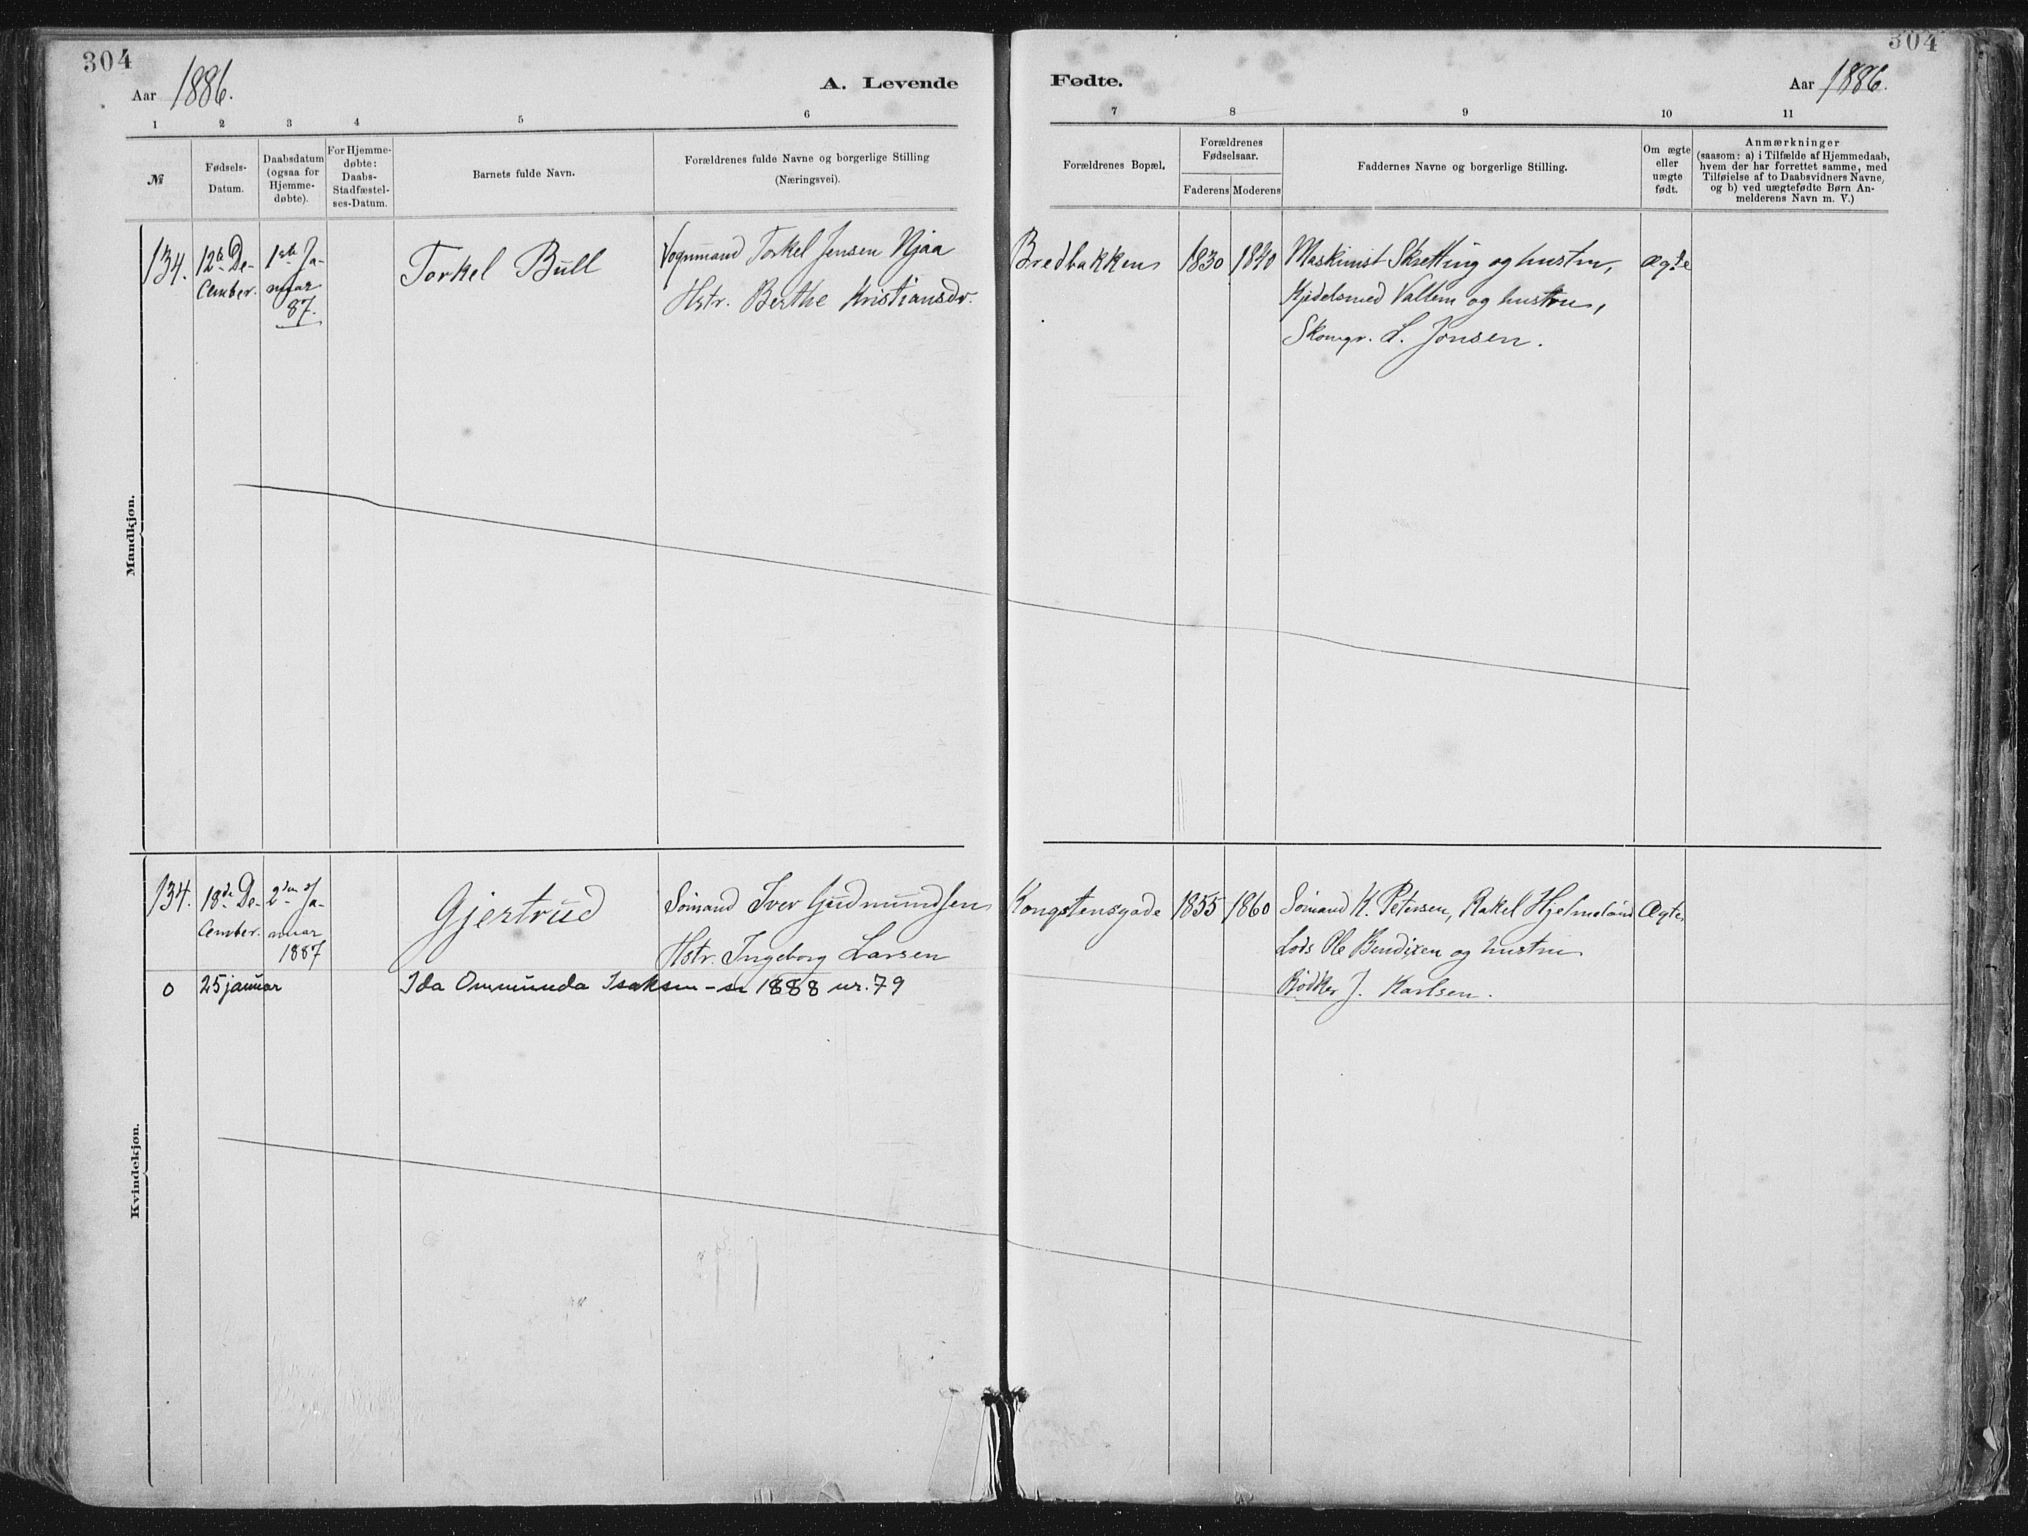 304
304
Aar 1886.
A. Levende
Fødte.
Aar 1886.
1 2 3 4 5 6 7 8 9 10 11
№
Fødsels-
Datum.
Daabsdatum
(ogsaa for
Hjemme-
døbte).
For Hjemme-
døbte:
Daabs-
Stadfæstel-
ses-Datum.
Barnets fulde Navn.
Forældrenes fulde Navne og borgerlige Stilling
(Næringsvei).
Forældrenes Bopæl.
Forældrenes
Fødselsaar.
Faderens Moderens
Faddernes Navne og borgerlige Stilling.
Om ægte
eller
uægte
født.
Anmærkninger
(saasom: a) i Tilfælde af Hjemmedaab,
hvem der har forrettet samme, med
Tilføielse af to Daabsvidners Navne,
og b) ved uægtefødte Børn An-
melderens Navn m. V.)
Mandkjøn.
134.
12te De-
cember.
1ste Ja-
nuar
87.
Torkel Bull
Vognmand Torkel Jensen Njaa
Hstr. Berthe Kristiansdr.
Bredbakken
1830 1840
Maskinist Skretting og hustru,
Kjedelsmed Vallem og hustru,
Skomgr. L. Jonsen.
Ægte
Kvindekjøn.
134.
18de De-
cember.
2den Ja-
nuar
1887
Gjertrud
Sømand Iver Gudmundsen
Hstr. Ingeborg Larsen
Kongstensgade
1855 1860
Sømand K. Petersen, Rakel Hjelmeland
Lods Ole Bendixen og hustru
Bødker J. Karlsen.
Ægte
0 25 januar Ida Ommunda Isaksen - se 1888 nr. 79